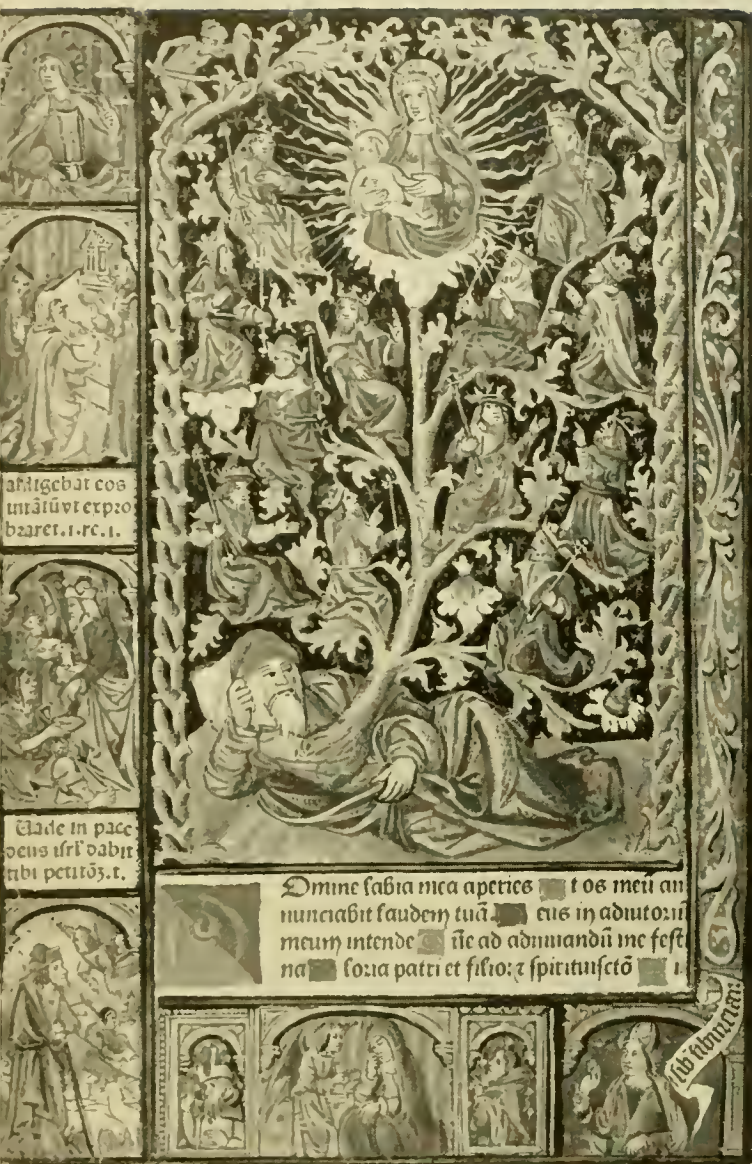 affligebat eos
vt expro
braret. 1. re. 1.
Uade in pace
deus isrl' dabit
tibi petitõꝫ. 1.
Omine labia mea aperies t os meũ an
nunciabit laudem tuã eus in adiutoriũ
meum intende ñe ad adiuuandũ me festi
na loria patri et filio: ⁊ spirituisctõ